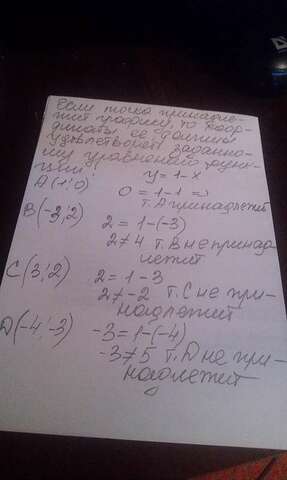 Если точка принадле-
жит графику, то коор-
динаты ее должны
удовлетворять заданно-
му уравнению функ-
ции.
y = 1 - x
A (1; 0)
0 = 1 - 1 =>
т. А принадлежит
B (-3; 2)
2 = 1 - (-3)
2 ≠ 4 т. В не принад
лежит
C (3; 2)
2 = 1 - 3
2 ≠ -2 т. С не при-
надлежит
D (-4; -3)
-3 = 1 - (-4)
-3 ≠ 5 т. D не при-
надлежит